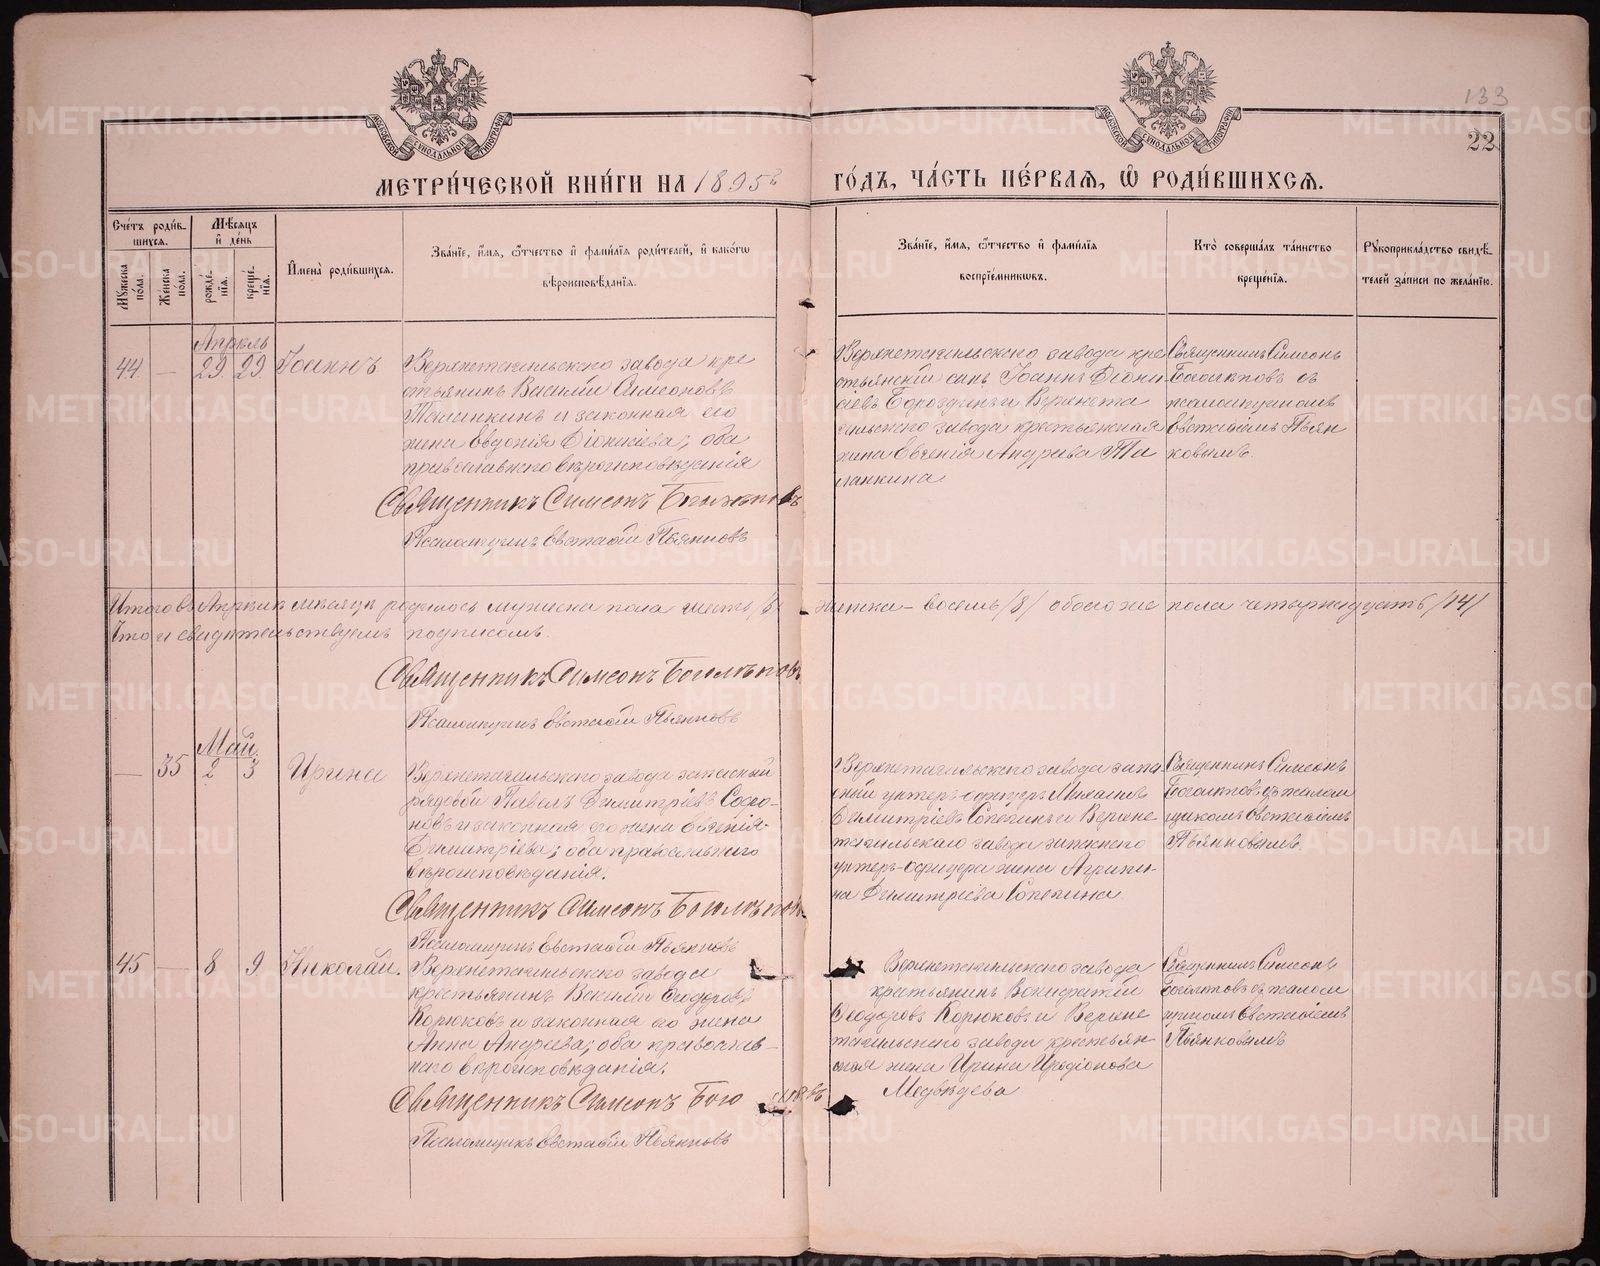 133
22
МЕТРИ́ЧЕСКОЙ КНИ́ГИ НА 1895 ГО́ДЪ, ЧА́СТЬ ПЕ́РВАЯ, Ѽ РОДИ́ВШИХСЯ.
Сче́тъ роди́вшихся.
Мꙋ́жеска по́ла.
Же́нска по́ла.
Мѣ́сяцъ и҆ де́нь
рожде́нїя.
креще́нїя.
И҆мена̀ роди́вшихся.
Зва́нїе, и҆́мя, ѻ҆́тчество и҆ фами́лїя роди́телей, и҆ како́гѡ
вѣроисповѣ́данїя.
Зва́нїе, и҆́мя, ѻ҆́тчество и҆ фами́лїя
воспрїе́мникѡвъ.
Кто̀ соверша́лъ та́инство
креще́нїя.
Рꙋкоприкла́дство свидѣ́телей за́писи по жела́нїю.
Апрѣль
44 — 29 29 Іоаннъ
Верхнетагильскаго завода кре
стьянинъ Василій Симеоновъ
Таланкинъ и законная его
жена Евдокія Діонисіева; оба
православнаго вѣроисповѣданія
Священникъ Симеонъ Боголѣповъ
Псаломщикъ Евстаѳій Пьянковъ
Верхнетагильскаго завода кре
стьянскій сынъ Іоаннъ Діони
сіевъ Бороздинъ и Верхнета
гильскаго завода крестьянская
жена Евгенія Андреева Та
ланкина
Священникъ Симеонъ
Боголѣповъ съ
псаломщикомъ
Евстаѳіемъ Пьян
ковымъ.
Итого въ Апрѣлѣ мѣсяцѣ родилось мужска пола шесть /6/ женска – восемь /8/ обоего же пола четырнадцать /14/
Что и свидѣтельствуемъ подписомъ.
Священникъ Симеонъ Боголѣповъ
Псаломщикъ Евстаѳій Пьянковъ
Май.
— 35 2 3 Ирина
Верхнетагильскаго завода запасный
рядовой Павелъ Димитріевъ
и законная его жена Евгенія
Димитріева; оба православнаго
вѣроисповѣданія.
Священникъ Симеонъ Боголѣповъ
Псаломщикъ Евстаѳій Пьянковъ
Верхнетагильскаго завода запа
сный унтеръ-офицеръ Михаилъ
Димитріевъ и Верхне
тагильскаго завода запаснаго
унтеръ-офицера жена Агрипи-
на Димитріева
Священникъ Симеонъ
Боголѣповъ съ псалом
щикомъ Евстаѳіемъ
Пьянковымъ.
45 — 8 9 Николай.
Верхнетагильскаго завода
крестьянинъ Василій Ѳеодоровъ
Корюковъ и законная его жена
Анна Андреева; оба православ-
наго вѣроисповѣданія.
Священникъ Симеонъ Боголѣповъ
Псаломщикъ Евстаѳій Пьянковъ
Верхнетагильскаго завода
крестьянинъ Вонифатій
Ѳеодоровъ Корюковъ и Верхне
тагильскаго завода крестьян
ская жена Ирина Иродіонова
Медвѣдева
Священникъ Симеонъ
Боголѣповъ съ псалом
щикомъ Евстаѳіемъ
Пьянковымъ
METRIKI.GASO-URAL.RU